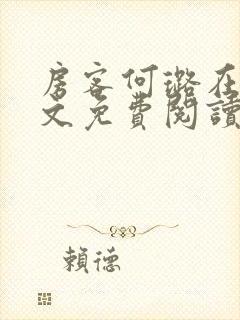 房客何璐在
文免費閱讀
賴德